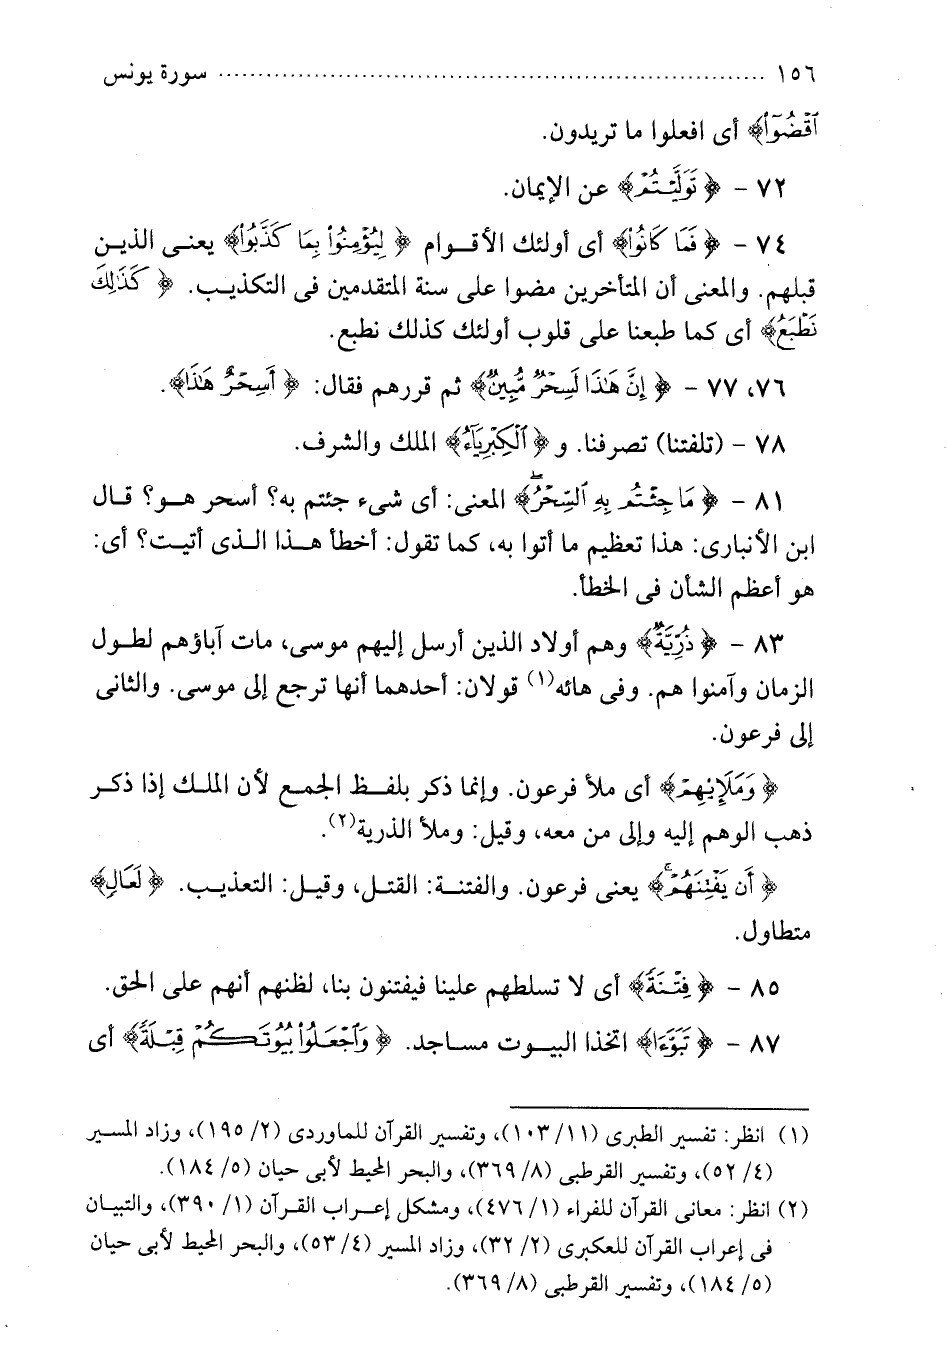 ١٥٦ ........................................................ سورة يونس
ٱقْضُوٓا۟﴾ أى افعلوا ما تريدون.
٧٢ - ﴿تَوَلَّيْتُمْ﴾ عن الإيمان.
٧٤ - ﴿فَمَا كَانُوا۟﴾ أى أولئك الأقوام ﴿لِيُؤْمِنُوا۟ بِمَا كَذَّبُوا۟﴾ يعنى الذين
قبلهم. والمعنى أن المتأخرين مضوا على سنة المتقدمين فى التكذيب. ﴿كَذَٰلِكَ
نَطْبَعُ﴾ أى كما طبعنا على قلوب أولئك كذلك نطبع.
٧٦، ٧٧ - ﴿إِنَّ هَٰذَا لَسِحْرٌ مُّبِينٌ﴾ ثم قررهم فقال: ﴿أَسِحْرٌ هَٰذَا﴾.
٧٨ - (تلفتنا) تصرفنا. و ﴿ٱلْكِبْرِيَآءُ﴾ الملك والشرف.
٨١ - ﴿مَا جِئْتُم بِهِ ٱلسِّحْرُ ۖ﴾ المعنى: أى شىء جئتم به؟ أسحر هـو؟ قـال
ابن الأنبارى: هذا تعظيم ما أتوا به، كما تقول: أخطأ هـذا الـذى أتيـت؟ أى:
هو أعظم الشأن فى الخطأ.
٨٣ - ﴿ذُرِّيَّةٌ﴾ وهم أولاد الذين أرسل إليهم موسى، مات آباؤهم لطـول
الزمان وآمنوا هم. وفى هائه(١) قولان: أحدهما أنها ترجع إلى موسى. والثانى
إلى فرعون.
﴿وَمَلَإِي۟هِمْ﴾ أى ملأ فرعون. وإنما ذكر بلفـظ الجمـع لأن الملـك إذا ذكـر
ذهب الوهم إليه وإلى من معه، وقيل: وملأ الذرية(٢).
﴿أَن يَفْتِنَهُمْ ۚ﴾ يعنى فرعون. والفتنـة: القتـل، وقيـل: التعذيـب. ﴿لَعَالٍ﴾
متطاول.
٨٥ - ﴿فِتْنَةً﴾ أى لا تسلطهم علينا فيفتنون بنا، لظنهم أنهم على الحق.
٨٧ - ﴿تَبَوَّءَا﴾ اتخذا البيـوت مسـاجد. ﴿وَٱجْعَلُوا۟ بُيُوتَكُمْ قِبْلَةً﴾ أى
(١) انظر: تفسير الطبرى (١٠٣/١١)، وتفسير القرآن للماوردى (١٩٥/٢)، وزاد المسير
(٥٢/٤)، وتفسير القرطبى (٣٦٩/٨)، والبحر المحيط لأبى حيان (١٨٤/٥).
(٢) انظر: معانى القرآن للفراء (٤٧٦/١)، ومشكل إعـراب القـرآن (٣٩٠/١)، والتبيـان
فى إعراب القرآن للعكبرى (٣٢/٢)، وزاد المسير (٥٣/٤)، والبحر المحيط لأبى حيان
(١٨٤/٥)، وتفسير القرطبى (٣٦٩/٨).